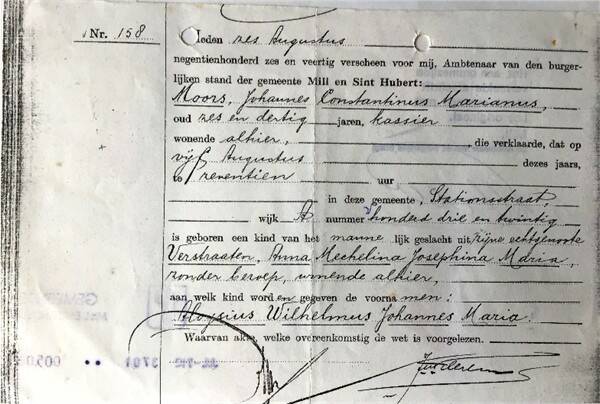 Nr. 158
Heden zes Augustus
negentienhonderd zes en veertig verscheen voor mij, Ambtenaar van den burger-
lijken stand der gemeente Mill en Sint Hubert:
Moors, Johannes Constantinus Marianus,
oud zes en dertig jaren, kassier
wonende alhier, die verklaarde, dat op
vijf Augustus dezes jaars,
te zeventien uur
in deze gemeente, Stationsstraat,
wijk A nummer honderd drie en twintig
is geboren een kind van het manne lijk geslacht uit zijne echtgenoote
Verstraaten, Anna Mechelina Josephina Maria,
zonder beroep, wonende alhier,
aan welk kind worden gegeven de voornamen:
Aloysius Wilhelmus Johannes Maria.
Waarvan akte, welke overeenkomstig de wet is voorgelezen.